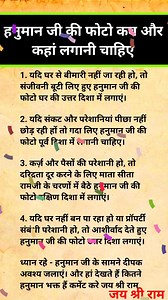 हनुमान जी की फोटो कब और
कहां लगानी चाहिए
1. यदि घर से बीमारी नहीं जा रही हो, तो
संजीवनी बूटी लिए हुए हनुमान जी की
फोटो घर की उत्तर दिशा में लगाएं।
2. यदि संकट और परेशानियां पीछा नहीं
छोड़ रही हों तो गदा लिए हनुमान जी की
फोटो पूर्व दिशा में लगानी चाहिए।
3. कर्ज़ और पैसों की परेशानी हो, तो
दरिद्रता दूर करने के लिए माता सीता
रामजी के चरणों में बैठे हनुमान जी की
फोटो दक्षिण दिशा में लगाएं।
4. यदि घर नहीं बन पा रहा हो या प्रॉपर्टी
संबंधी परेशानी हो, तो आशीर्वाद देते हुए
हनुमान जी की फोटो उत्तर दिशा में लगाएं।
ध्यान रहे - हनुमान जी के सामने दीपक
अवश्य जलाएं। और हां देखते हैं कितने
हनुमान भक्त हैं कमेंट करे जय श्री राम
जय श्री राम